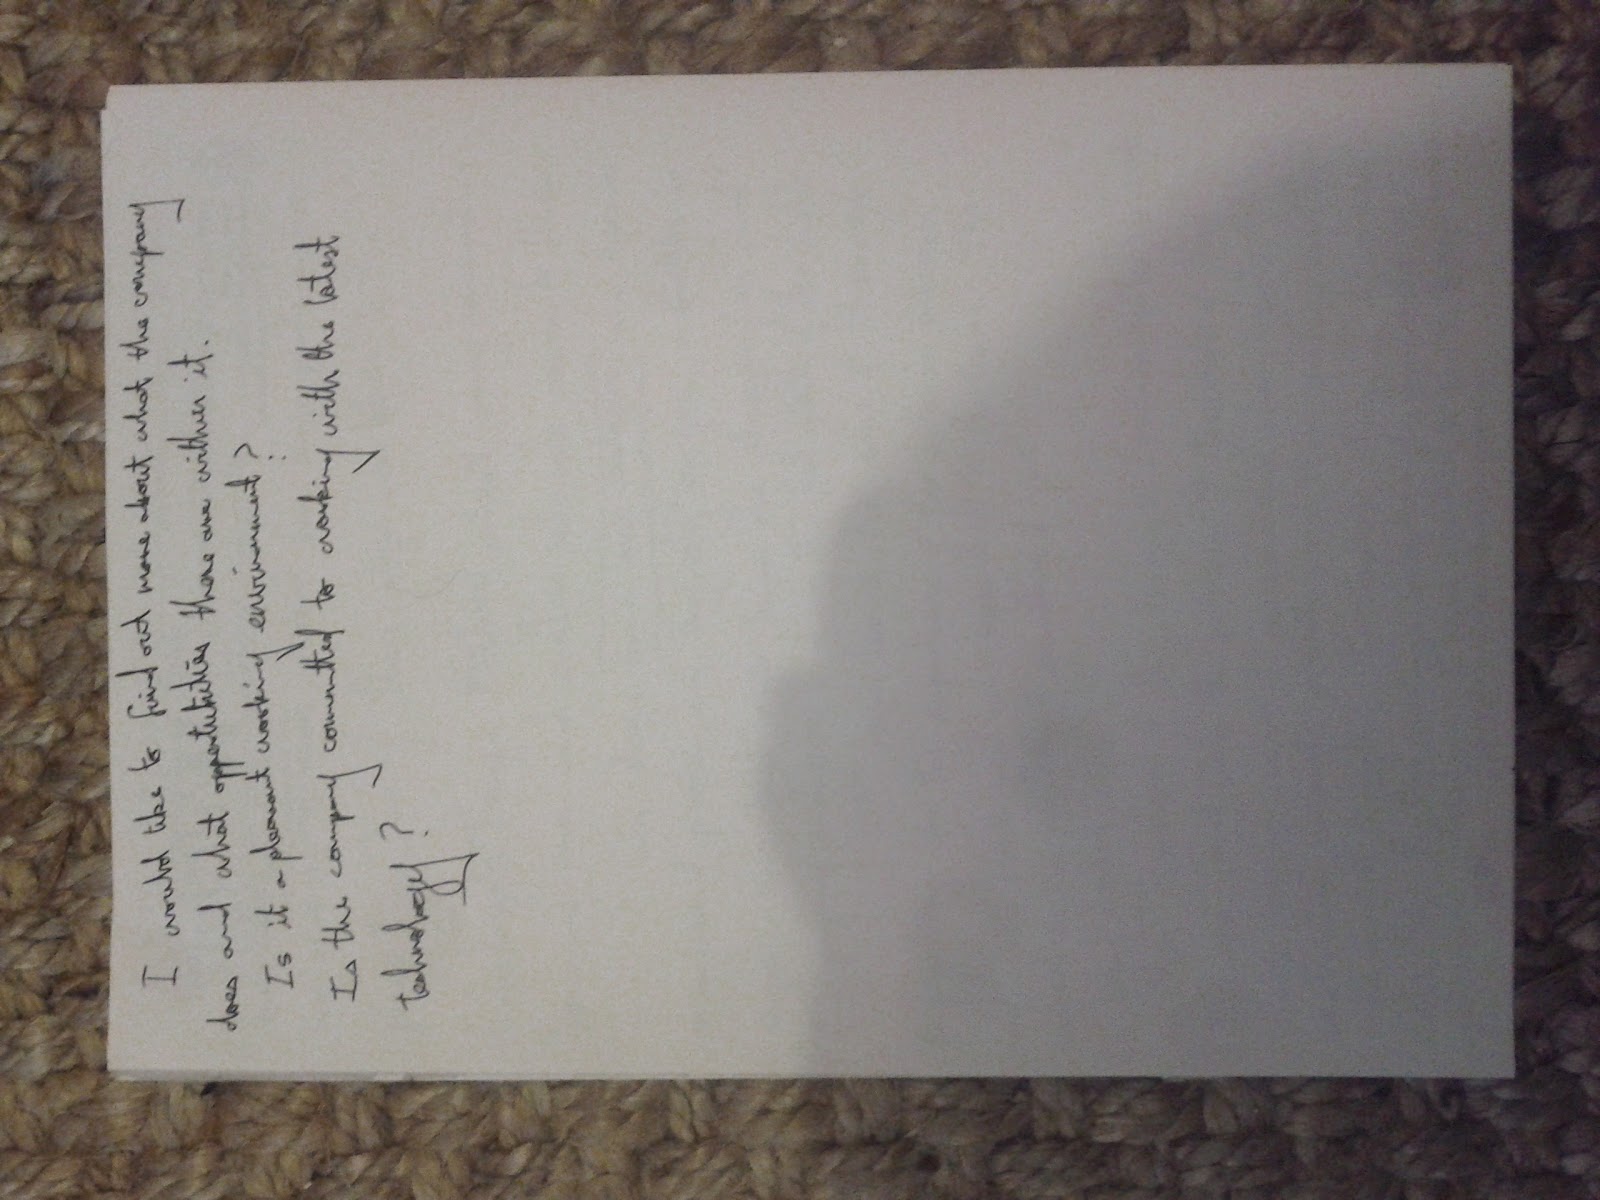 I would like to find out more about what the company
does and what opportutities there are within it.
Is it a pleasant working enviroment?
Is the company committed to working with the latest
technology?